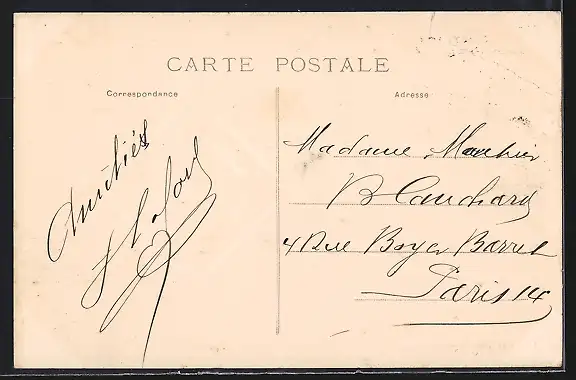 CARTE POSTALE
Correspondance
Adresse
Amitiés
Madame
Blanchard
4 Rue Boyer Barret
Paris 14